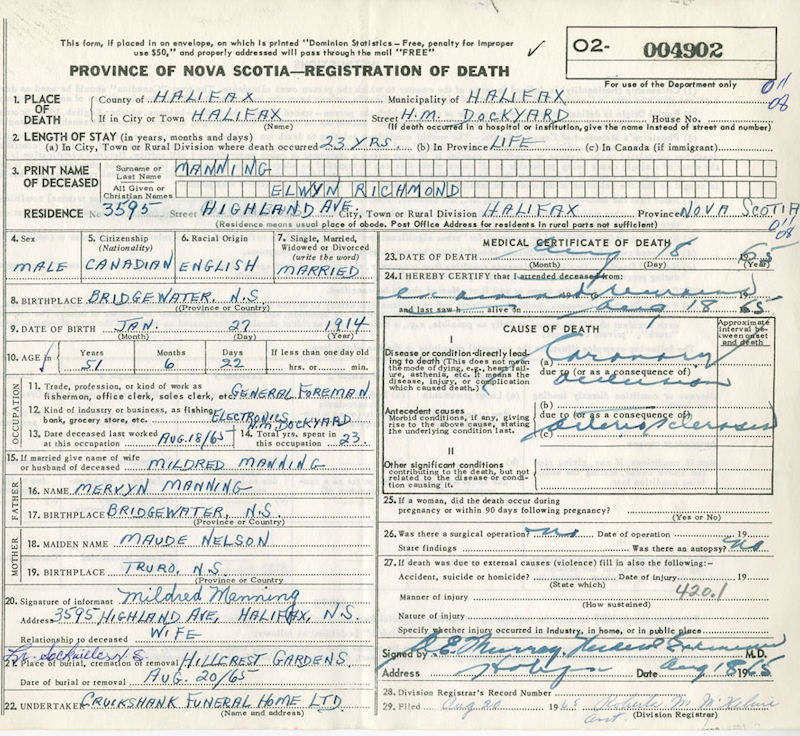 This form, if placed in an envelope, on which is printed "Dominion Statistics – Free, penalty for improper
use $50," and properly addressed will pass through the mail "FREE"
O2- 004902
PROVINCE OF NOVA SCOTIA—REGISTRATION OF DEATH
For use of the Department only
011
08
1. PLACE OF DEATH
County of HALIFAX Municipality of HALIFAX
If in City or Town HALIFAX Street H.M. DOCKYARD House No.
(Name) (If death occurred in a hospital or institution, give the name instead of street and number)
2. LENGTH OF STAY (in years, months and days)
(a) In City, Town or Rural Division where death occurred 23 YRS. (b) In Province LIFE (c) In Canada (if immigrant).
3. PRINT NAME OF DECEASED
Surname or Last Name MANNING
All Given or Christian Names ELWYN RICHMOND
RESIDENCE No 3595 Street HIGHLAND AVE. City, Town or Rural Division HALIFAX Province NOVA SCOTIA
(Residence means usual place of abode. Post Office Address for residents in rural parts not sufficient)
011
08
4. Sex MALE
5. Citizenship (Nationality) CANADIAN
6. Racial Origin ENGLISH
7. Single, Married, Widowed or Divorced (write the word) MARRIED
8. BIRTHPLACE BRIDGEWATER, N.S
(Province or Country)
9. DATE OF BIRTH JAN. 27 1914
(Month) (Day) (Year)
10. AGE in Years Months Days If less than one day old
51 6 22 hrs. or min.
OCCUPATION
11. Trade, profession, or kind of work as
fisherman, office clerk, sales clerk, etc. GENERAL FOREMAN
12. Kind of industry or business, as fishing, bank, grocery store, etc. ELECTRONICS
H.M. DOCKYARD
13. Date deceased last worked at this occupation AUG.18/65
14. Total yrs. spent in this occupation 23.
15. If married give name of wife
or husband of deceased MILDRED MANNING
FATHER
16. NAME MERVYN MANNING
17. BIRTHPLACE BRIDGEWATER, N.S.
(Province or Country)
MOTHER
18. MAIDEN NAME MAUDE NELSON
19. BIRTHPLACE TRURO, N.S.
(Province or Country)
20. Signature of informant Mildred Manning
Address 3595 HIGHLAND AVE, HALIFAX, N.S.
Relationship to deceased WIFE
21. Place of burial, cremation or removal HILLCREST GARDENS
Date of burial or removal AUG. 20/65
22. UNDERTAKER CRUIKSHANK FUNERAL HOME LTD.
(Name and address)
MEDICAL CERTIFICATE OF DEATH
23. DATE OF DEATH Aug 18 1965
(Month) (Day) (Year)
24. I HEREBY CERTIFY that I attended deceased from:
19 19
and last saw h alive on Aug 18 1965
CAUSE OF DEATH
Approximate interval between onset and death
I
Disease or condition directly leading to death (This does not mean the mode of dying, e.g., heart failure, asthenia, etc. It means the disease, injury, or complication which caused death.)
(a) Coronary
due to (or as a consequence of)
occlusion
Antecedent causes
Morbid condition, if any, giving rise to the above cause, stating the underlying condition last.
(b)
due to (or as a consequence of)
(c)
II
Other significant conditions
contributing to the death, but not related to the disease or condition causing it.
25. If a woman, did the death occur during
pregnancy or within 90 days following pregnancy?
(Yes or No)
26. Was there a surgical operation? no Date of operation 19
State findings Was there an autopsy? no
27. If death was due to external causes (violence) fill in also the following:-
Accident, suicide or homicide? Date of injury 19
(State which)
Manner of injury 420.1
(How sustained)
Nature of injury
Specify whether injury occurred in industry, in home, or in public place.
Signed by Murray M.D.
Address Halifax Date Aug 18 1965
28. Division Registrar's Record Number
29. Filed Aug 20 1965 Roberta M
(Division Registrar)